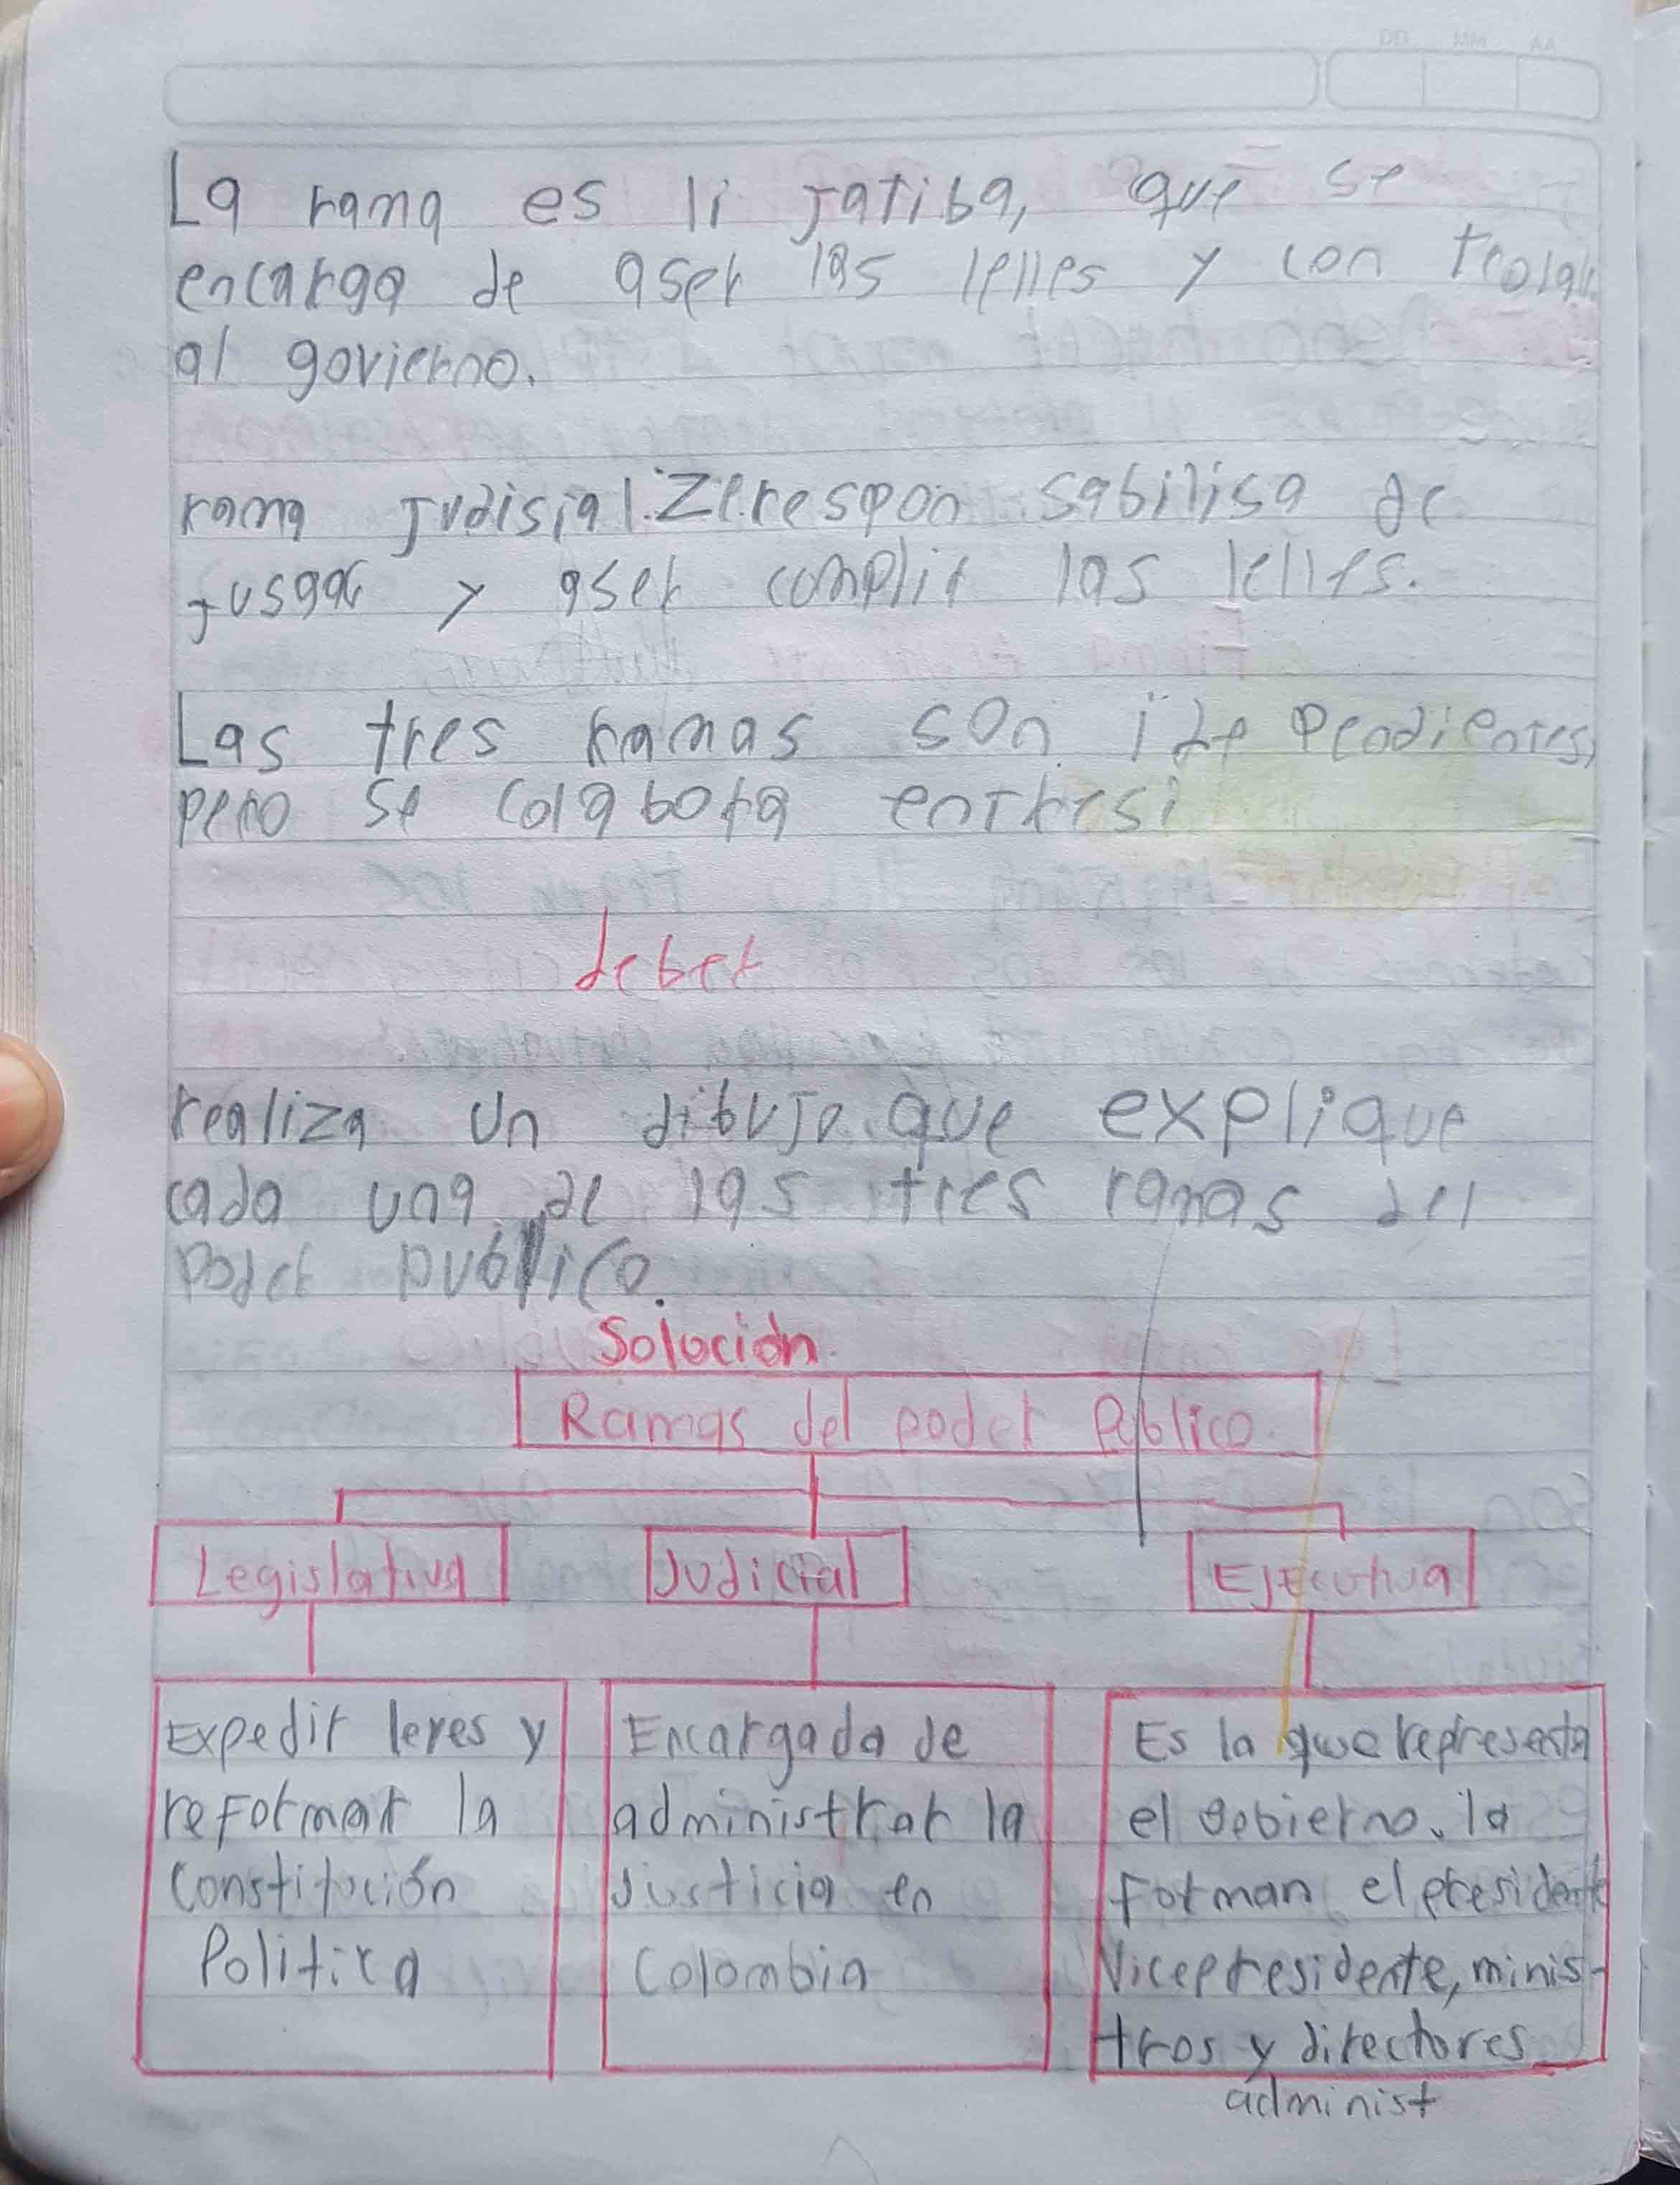 DD MM AA
La rama es li jatiba, que se
encarga de aser las lelles y con trolar
al govierno.
rama judisial. Ze responsabilisa de
jusgar y aser complir las lelles.
Las tres ramas son ide pendientes,
pero se colabora entresi
deber
realiza un dibujo que explique
cada una de las tres ramas del
poder publico.
Solución
Ramas del poder Público.
Legislativa Judicial Ejecutiva
Expedir leyes y
reformar la
Constitución
Politica
Encargada de
administrar la
Justicia en
Colombia
Es la que representa
el gobierno. la
forman el presidente
Vicepresidente, minis-
tros y directores
administ